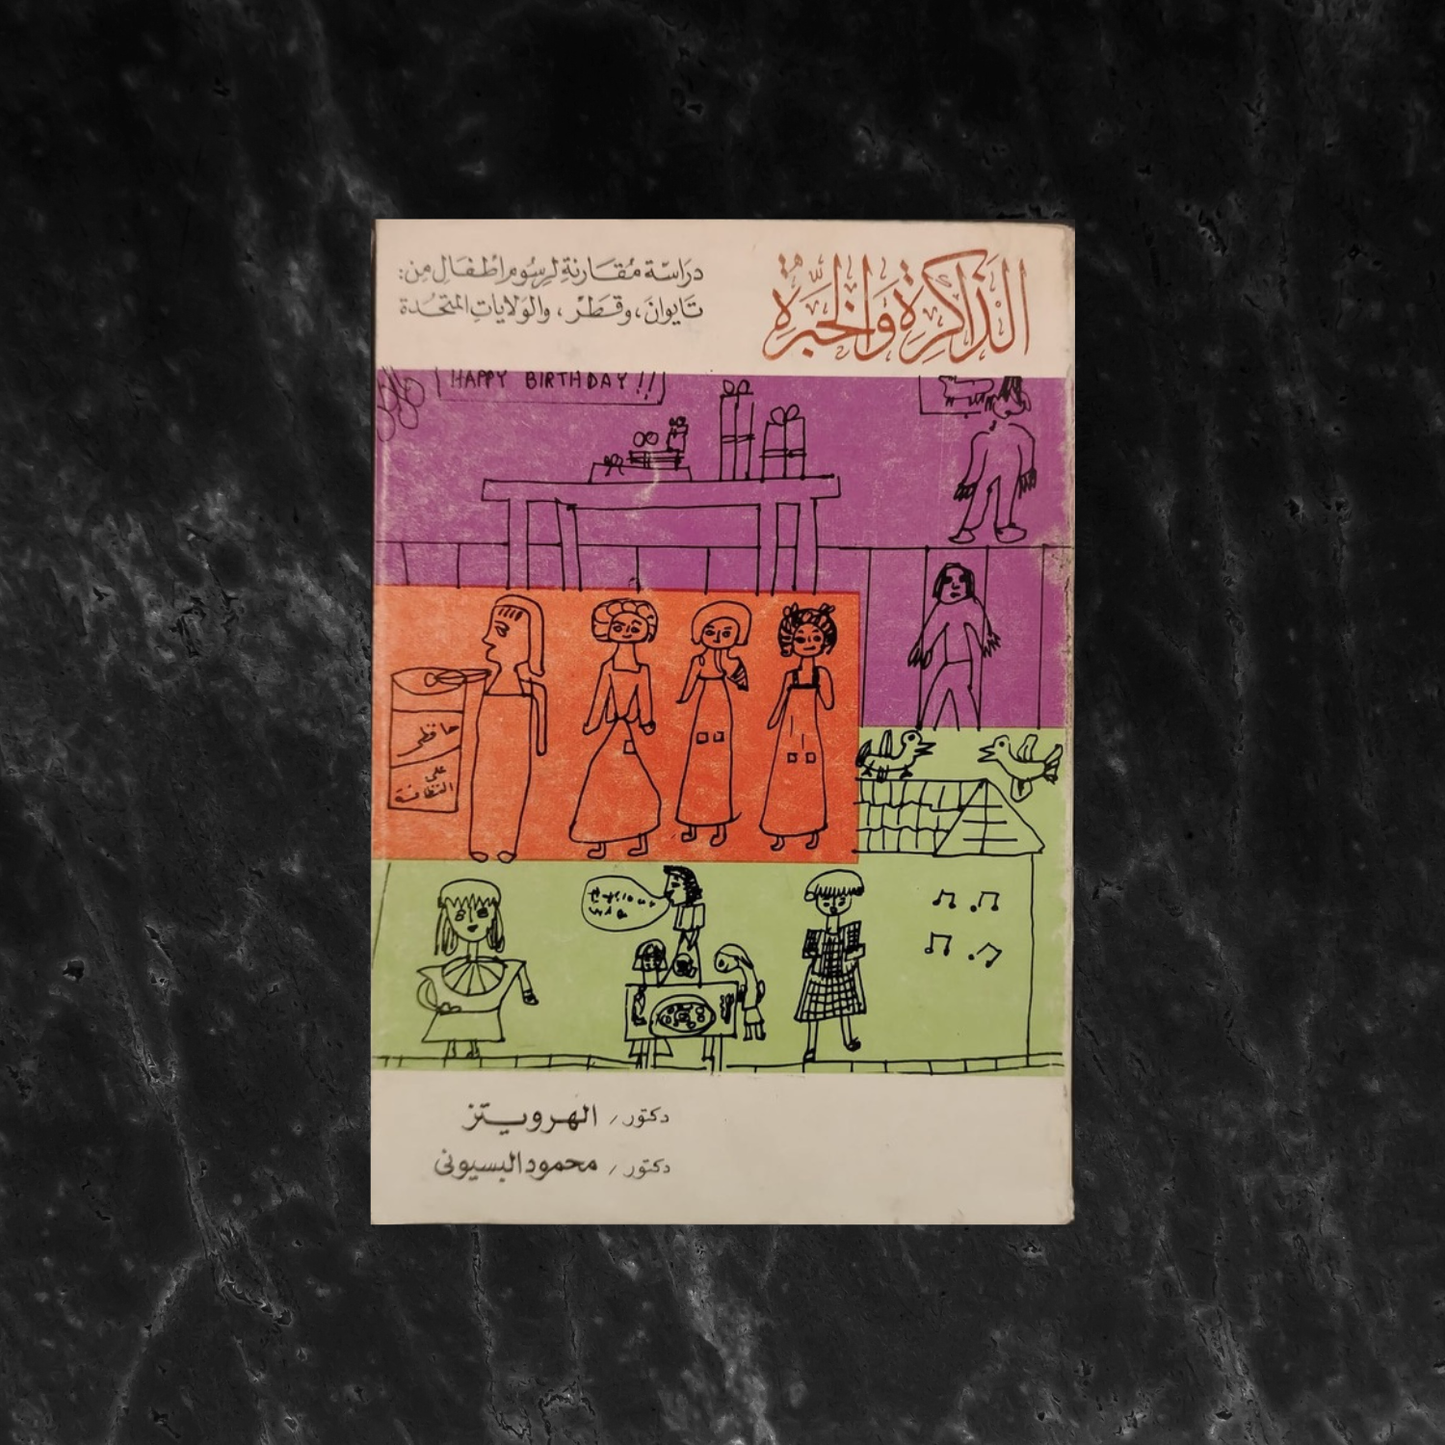 الذَاكِرَة وَالخِبَّرة
دَرَاسَة مُقَارنة لرسُوم اطفَال مِن:
تَايوانَ، وقطَر، والوَلاياتِ المتحُدة
HAPPY BIRTHDAY !!
حافظ
على
النظافة
دكتور/ الهرويتز
دكتور/ محمود البسيونى